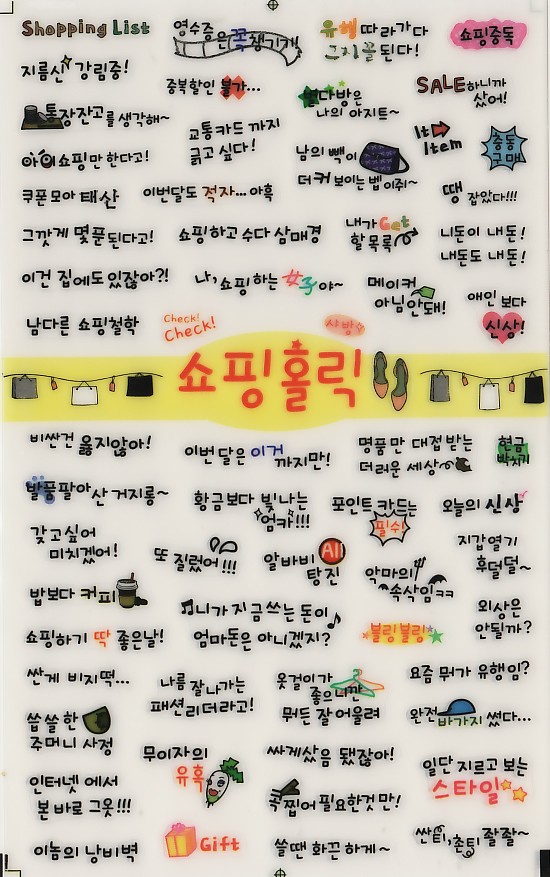 Shopping List
영수증은 꼭 챙기기!
유행 따라가다
그지꼴 된다!
쇼핑중독
지름신 강림중!
중복할인 불가...
별다방은
나의 아지트~
SALE하니까
샀어!
통장잔고를 생각해~
교통카드 까지
긁고 싶다!
It
Item
충동
구매
아이쇼핑만 한다고!
남의 빽이
더 커 보이는 법이쥐~
쿠폰 모아 태산
이번달도 적자...아흑
땡 잡았다!!!
그깟게 몇푼 된다고!
쇼핑하고 수다 삼매경
내가 Get
할 목록
니돈이 내돈!
내돈도 내돈!
이건 집에도 있잖아?!
나, 쇼핑하는 女子야~
메이커
아님 안돼!
애인 보다
신상!
남다른 쇼핑철학
Check!
Check!
사방
쇼핑홀릭
비싼건 옳지않아!
이번 달은 이거
까지만!
명품만 대접 받는
더러운 세상~
현금
박치기
발품팔아 산 거지롱~
황금보다 빛나는
엄카!!!
포인트 카드는
필수!
오늘의 신상
갖고싶어
미치겠어!
또 질렀어!!!
알바비 All
탕진
악마의
속삭임ㅋㅋ
지갑열기
후덜덜~
밥보다 커피
니가 지금쓰는 돈이
엄마돈은 아니겠지?
블링블링
외상은
안될까?
쇼핑하기 딱 좋은날!
싼게 비지떡...
나름 잘나가는
패션리더라고!
옷걸이가
좋으니깐
뭐든 잘 어울려
요즘 뭐가 유행임?
씁쓸한
주머니 사정
완전 바가지 썼다...
무이자의
유혹
싸게샀음 됐잖아!
일단 지르고 보는
스타일
인터넷에서
본 바로 그옷!!!
콕찝어 필요한것만!
이놈의 낭비벽
Gift
쓸땐 화끈하게~
싼티, 촌티 좔좔~